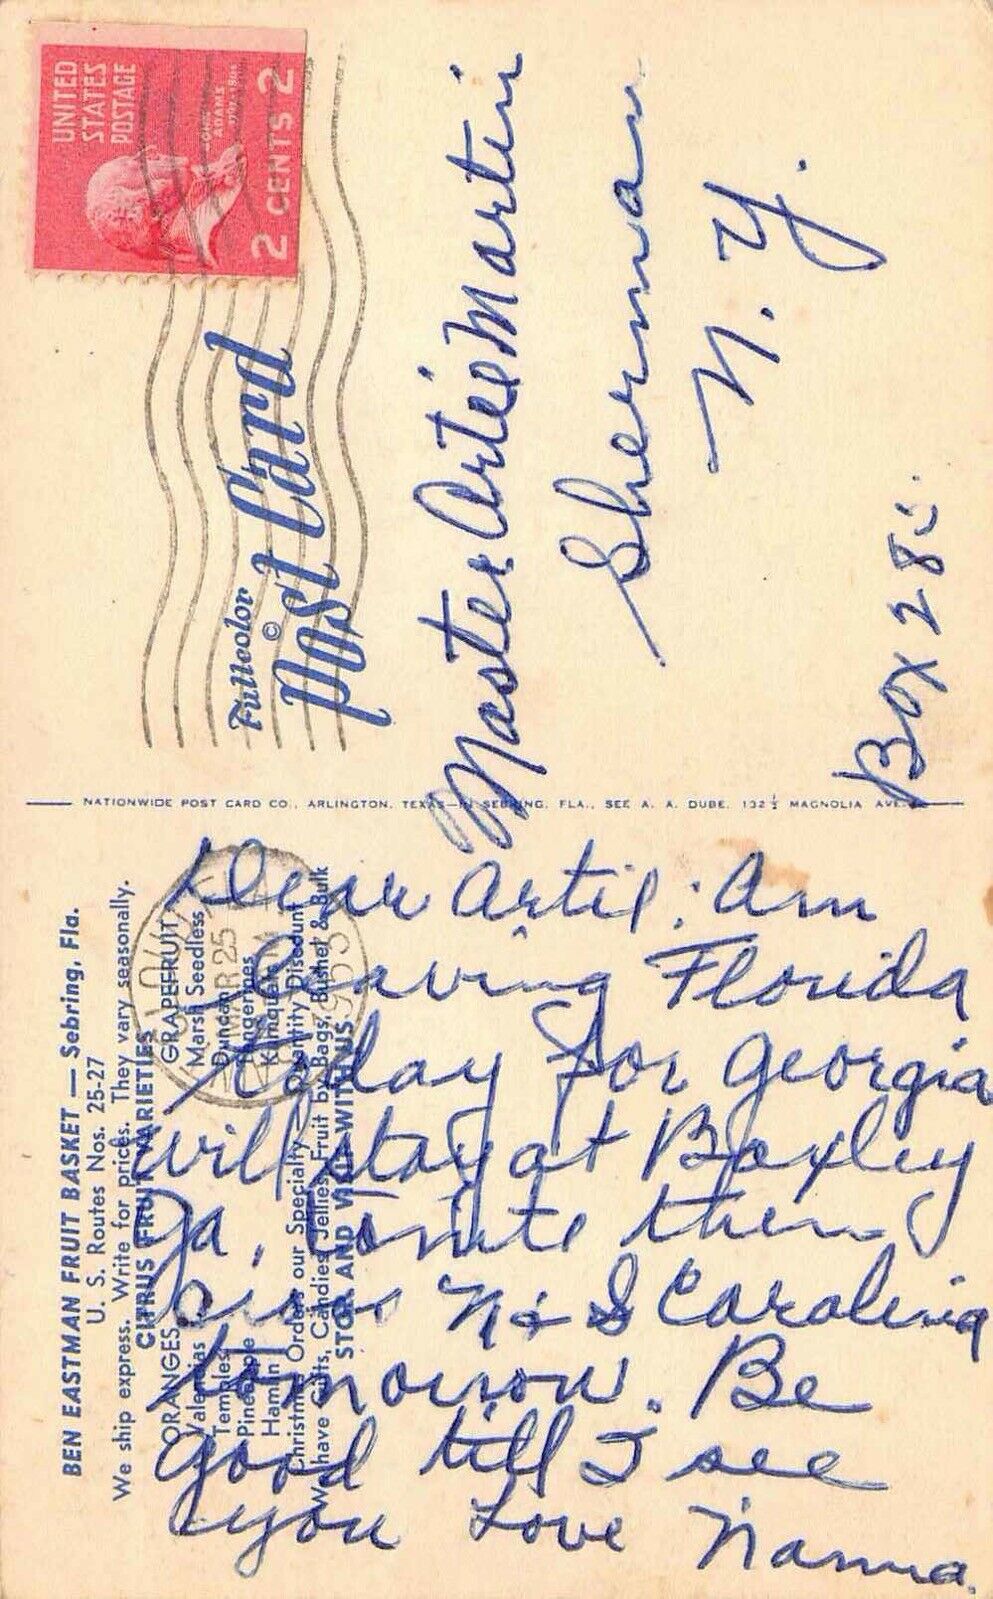 UNITED
STATES
POSTAGE
JOHN
ADAMS
1797-1801
2 CENTS 2
Fullcolor
©
Post Card
Master Artie Martin
Sherman
N. Y.
Box 28
NATIONWIDE POST CARD CO., ARLINGTON, TEXAS—IN SEBRING, FLA., SEE A. A. DUBE, 132½ MAGNOLIA AVE.
BEN EASTMAN FRUIT BASKET — Sebring, Fla.
U. S. Routes Nos. 25-27
We ship express. Write for prices. They vary seasonally.
CITRUS FRUIT VARIETIES
ORANGES GRAPEFRUIT
Valencias Marsh Seedless
Temples Duncan
Pineapple Tangerines
Hamlin Kumquats
Christmas Orders our Specialty—Quantity Discount
We have Gifts, Candies, Jellies, Fruit by Bags, Bushel & Bulk
STOP AND VISIT WITH US
MAR 25
1953
Dear Artie: Am
leaving Florida
today for Georgia
will stay at Baxley
Ga. Tonite then
N & S Carolina
tomorrow. Be
good till I see
you Love Nanna.